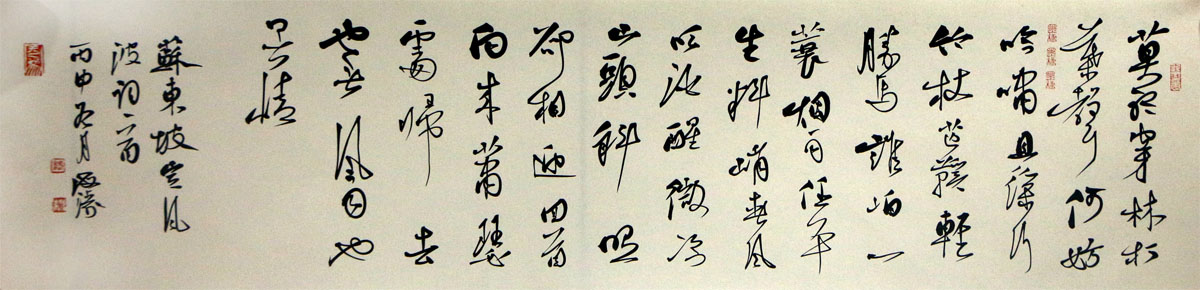 莫听穿林打
葉聲何妨
吟嘯且徐行
竹杖芒鞋輕
勝馬誰怕一
蓑烟雨任平
生料峭春風
吹酒醒微冷
山頭斜照
卻相迎回首
向来蕭瑟
處歸去
也无風雨也
无晴
蘇東坡定風
波詞一首
丙申冬月